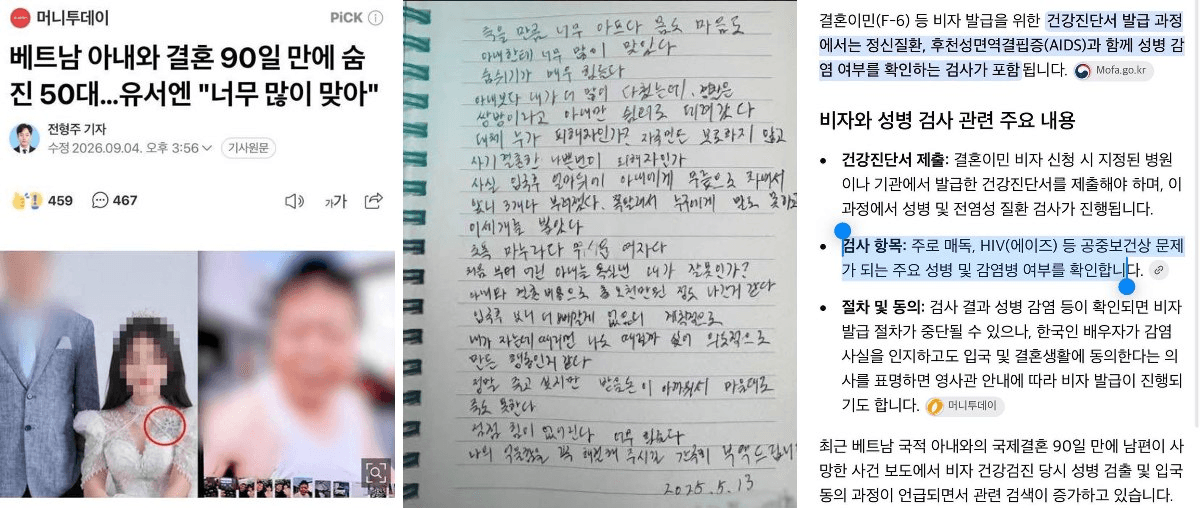 머니투데이
PiCK
베트남 아내와 결혼 90일 만에 숨
진 50대...유서엔 "너무 많이 맞아"
전형주 기자
수정 2026.09.04. 오후 3:56
기사원문
459
467
가가
죽을 만큼 너무 아프다 몸도 마음도
아내한테 너무 많이 맞았다
숨쉬기가 매우 힘든다
아내보다 내가 더 많이 다쳤는데,
쌍방이라고 아내만 쉼터로 데려갔다
대체 누가 피해자인가? 자국민은 보호하지 않고
사기결혼한 나쁜년이 피해자인가
사실 입국후 얼마뒤에 아내에게 무릎으로
앞니 3개나 부러졌다. 쪽팔려서 누구에게 말도 못하고
이 세개를
초혼 마누라다 여자다
처음 부터 어린 아내는 욕심낸 내가 잘못인가?
아내와 결혼비용으로 총 오천만원 정도 나간거 같다
입국후 보니 더 빼갈게 없으니 계획적으로
내가 자는데 때리면 나도 때릴까 싶어 의도적으로
만든 행동인지 같다
정말 죽고 싶지만 받을돈이 아까워서 마음대로
죽도 못한다
점점 힘이 없어진다 너무
나의 억울함을 꼭 해결해 주시길 간곡히 부탁드립니다
2025.5.13
결혼이민(F-6) 등 비자 발급을 위한 건강진단서 발급 과정
에서는 정신질환, 후천성면역결핍증(AIDS)과 함께 성병 감
염 여부를 확인하는 검사가 포함됩니다. Mofa.go.kr
비자와 성병 검사 관련 주요 내용
• 건강진단서 제출: 결혼이민 비자 신청 시 지정된 병원
이나 기관에서 발급한 건강진단서를 제출해야 하며, 이
과정에서 성병 및 전염성 질환 검사가 진행됩니다.
• 검사 항목: 주로 매독, HIV(에이즈) 등 공중보건상 문제
가 되는 주요 성병 및 감염병 여부를 확인합니다.
• 절차 및 동의: 검사 결과 성병 감염 등이 확인되면 비자
발급 절차가 중단될 수 있으나, 한국인 배우자가 감염
사실을 인지하고도 입국 및 결혼생활에 동의한다는 의
사를 표명하면 영사관 안내에 따라 비자 발급이 진행되
기도 합니다. 머니투데이
최근 베트남 국적 아내와의 국제결혼 90일 만에 남편이 사
망한 사건 보도에서 비자 건강검진 당시 성병 검출 및 입국
동의 과정이 언급되면서 관련 검색이 증가하고 있습니다.